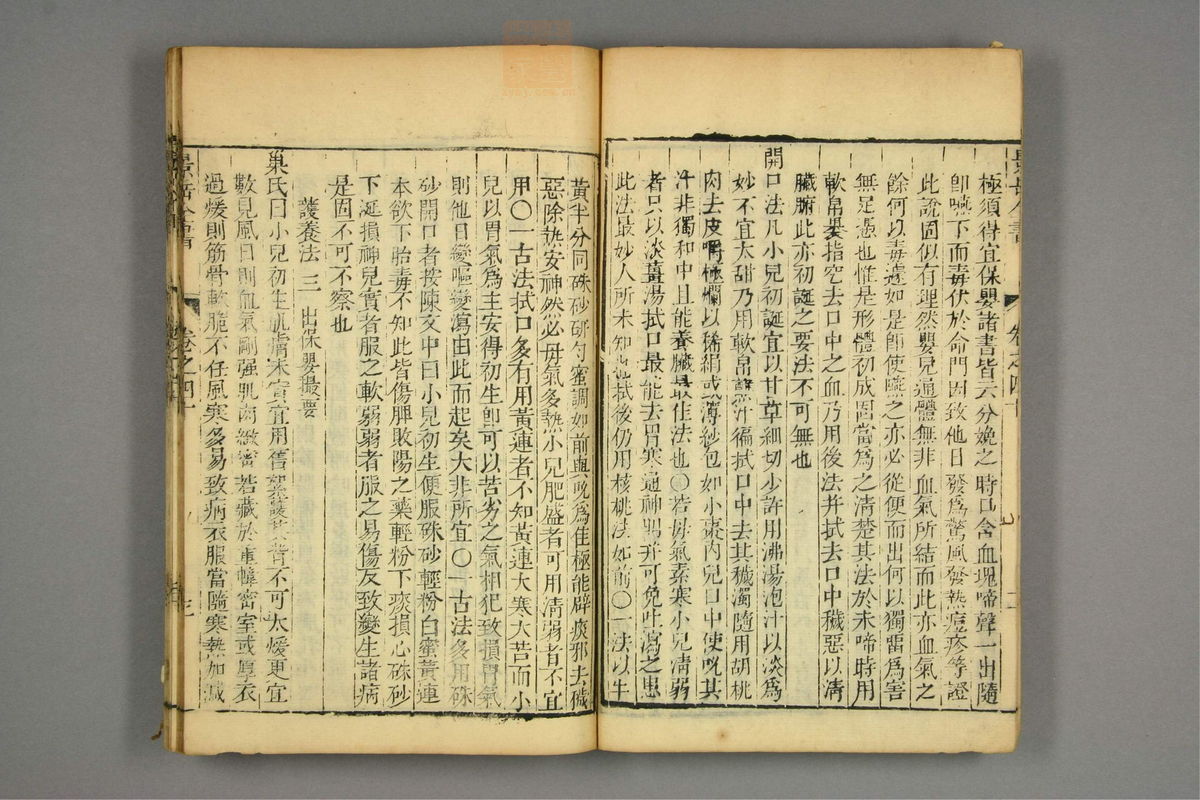 極須得宜保嬰諸書皆云分娩之時口含血塊啼聲一出隨
即嚥下而毒伏於命門因致他日發為驚風發熱痘疹等證
此說固似有理然嬰兒通體無非血氣所結而此亦血氣之
餘何以毒遽如是即使嚥之亦必從便而出何以獨留為害
無足憑也惟是形體初成固當為之清楚其法於未啼時用
軟帛裹指挖去口中之血乃用後法并拭去口中穢惡以清
臟腑此亦初誕之要法不可無也
開口法凡小兒初誕宜以甘草細切少許用沸湯泡汁以淡為
妙不宜太甜乃用軟帛蘸汁徧拭口中去其穢濁隨用胡桃
肉去皮嚼極爛以稀絹或薄紗包如小棗內兒口中使吮其
汁非獨和中且能養臟最佳法也○若母氣素寒小兒清弱
者只以淡薑湯拭口最能去胃寒通神明并可免吐瀉之患
此法最妙人所未知也拭後仍用核桃法如前○一法以牛
黃半分同硃砂研勻蜜調如前與吮為佳極能辟痰邪去穢
惡除熱安神然必母氣多熱小兒肥盛者可用清弱者不宜
用○一古法拭口多有用黃連者不知黃連大寒大苦而小
兒以胃氣為主安得初生即可以苦劣之氣相犯致損胃氣
則他日變嘔變瀉由此而起矣大非所宜○一古法多用硃
砂開口者按陳文中曰小兒初生便服硃砂輕粉白蜜黃連
本欲下胎毒不知此皆傷脾敗陽之藥輕粉下痰損心硃砂
下涎損神兒實者服之軟弱弱者服之易傷反致變生諸病
是固不可不察也
護養法 三 出保嬰撮要
巢氏曰小兒初生肌膚未實宜用舊絮護其背不可太煖更宜
數見風日則血氣剛強肌肉緻密若藏於重幃密室或厚衣
過煖則筋骨軟脆不任風寒多易致病衣服當隨寒熱加減
景岳全書
卷之四十
三